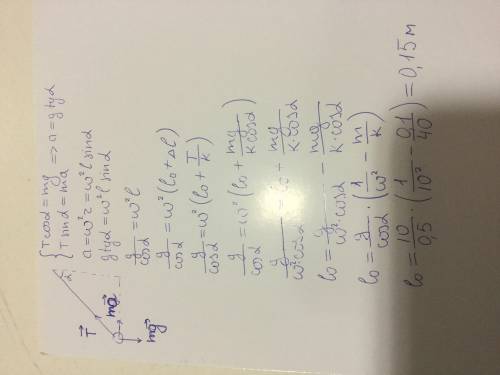 α
T⃗
ma⃗
mg⃗
{ Tcosα = mg
{ Tsinα = ma => a = g tgα
a = ω²r = ω² l sinα
g tgα = ω² l sinα
g/cosα = ω² l
g/cosα = ω² (l₀ + Δl)
g/cosα = ω² (l₀ + T/k)
g/cosα = ω² (l₀ + mg/(k cosα))
g/(ω²·cosα) = l₀ + mg/(k·cosα)
l₀ = g/(ω²·cosα) - mg/(k·cosα)
l₀ = g/cosα · (1/ω² - m/k)
l₀ = 10/0,5 · (1/10² - 0,1/40) = 0,15 м